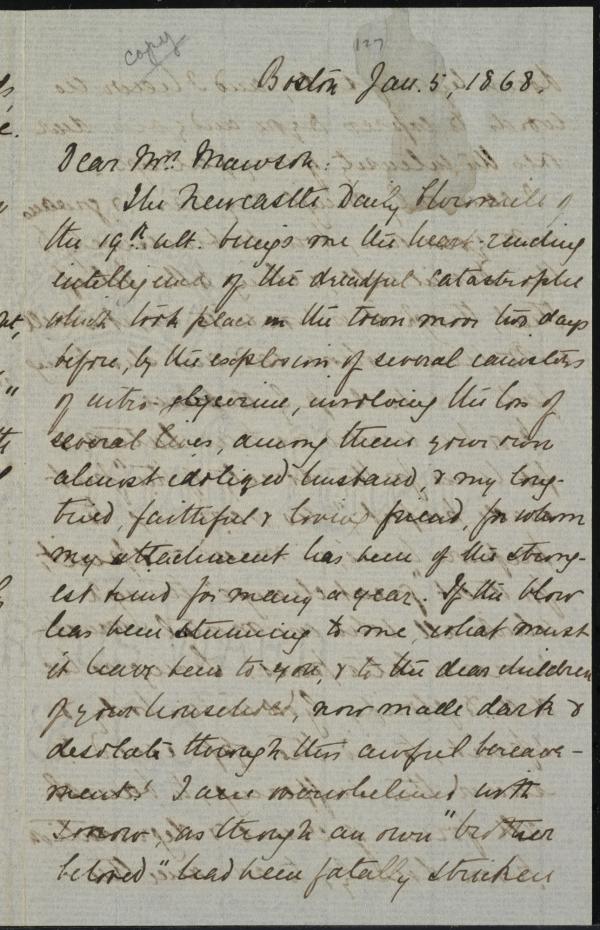 copy
127
Boston Jan. 5, 1868.
Dear Mrs. Mawson:
The Newcastle Daily Chronicle of
the 19th ult. brings me the heart-rending
intelligence of the dreadful catastrophe
which took place on the town moor two days
before, by the explosion of several canisters
of nitro-glycerine, involving the loss of
several lives, among them your own
almost idolized husband, & my long-
tried, faithful & loving friend, for whom
my attachment has been of the strong-
est kind for many a year. If the blow
has been stunning to me, what must
it have been to you, & to the dear children
of your household, now made dark &
desolate through this awful bereave-
ment! I am overwhelmed with
sorrow, as though an own "brother
beloved" had been fatally stricken